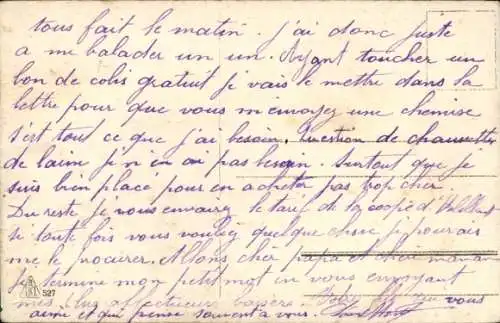 tous fait le matin. j'ai donc juste
a me balader un un. Ayant toucher un
bon de colis gratuit je vais le mettre dans la
lettre pour que vous m'envoyez une chemise
s'est tout ce que j'ai besoin. Question de chaussettes
de laine j'n en ai pas besoin. Surtout que je
suis bien placé pour en acheter pas trop cher
Du reste je vous envairez le tarif de la coopé d'
si toute fois vous voulez quelque chose je pourais
me le procurer. Allons cher papa et chère maman
je termine mon petit mot en vous envoyant
mes plus affectueux baisers. Votre qui vous
aime et qui pense souvent a vous.
527